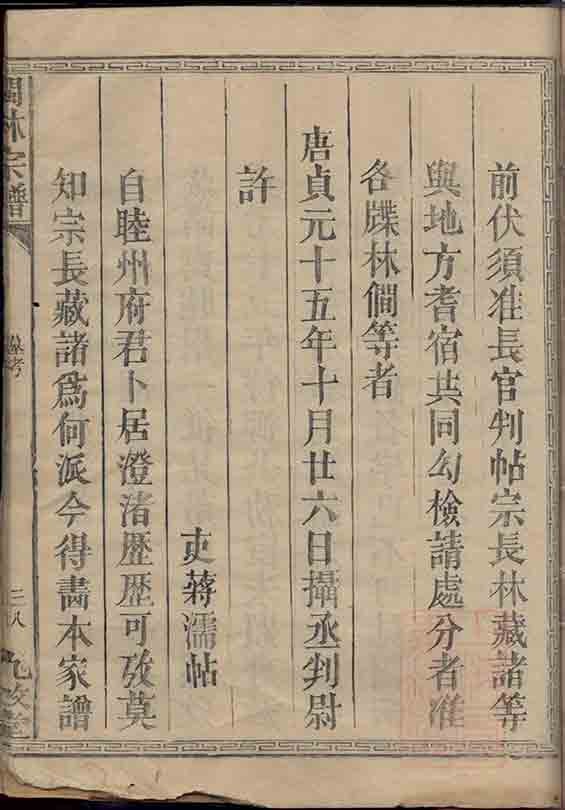 前伏須准長官判帖宗長林藏諸等
與地方耆宿共同勾檢請處分者准
各牒林僩等者
唐貞元十五年十月廿六日攝丞判尉
許
吏蔣濡帖
自睦州府君卜居澄渚歷歷可攷莫
知宗長藏諸爲何派今得畵本家譜
林宗譜
考
三八
九牧堂